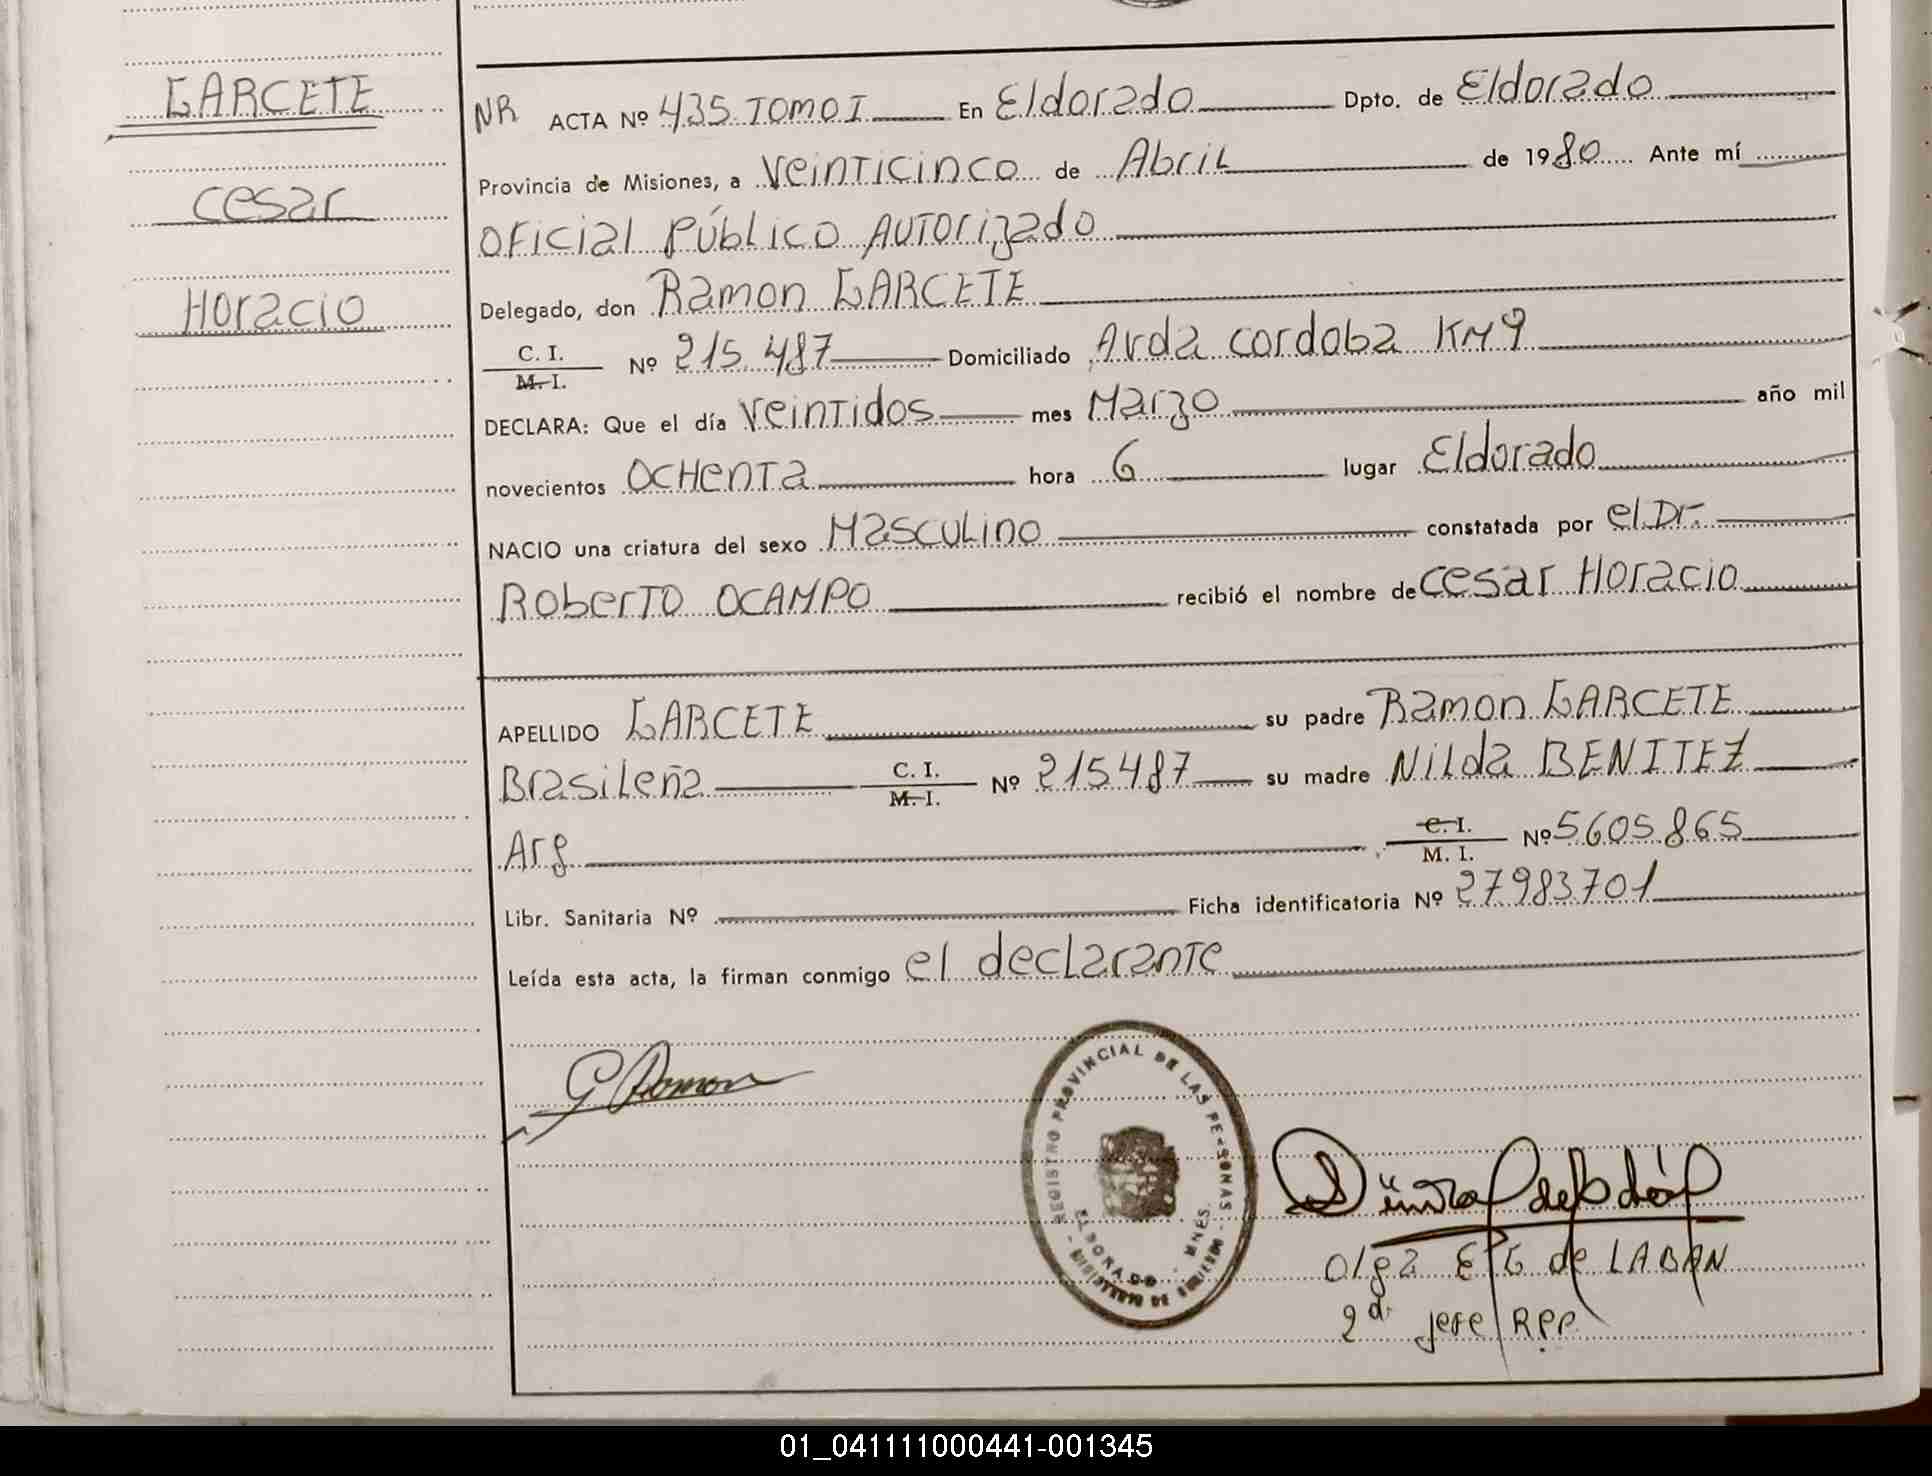 GARCETE
cesar
Horacio
NR ACTA Nº 435 TOMO I En Eldorado Dpto. de Eldorado
Provincia de Misiones, a veinticinco de Abril de 1980 Ante mí
Oficial Público Autorizado
Delegado, don Ramon GARCETE
C. I.
M. I. Nº 215.487 Domiciliado Avda cordoba KM 9
DECLARA: Que el día veintidos mes Marzo año mil
novecientos OCHenta hora 6 lugar Eldorado
NACIO una criatura del sexo Masculino constatada por el Dr.
Roberto OCAMPO recibió el nombre de cesar Horacio
APELLIDO GARCETE su padre Ramon GARCETE
Brasileña C. I.
M. I. Nº 215487 su madre Nilda BENITEZ
Arg C. I.
M. I. Nº 5605865
Libr. Sanitaria Nº Ficha identificatoria Nº 27983701
Leída esta acta, la firman conmigo el declarante
G Ramon
REGISTRO PROVINCIAL DE LAS PERSONAS
ELDORADO - MNES.
Olga E G de LABAN
2da jefe RPP
01_041111000441-001345